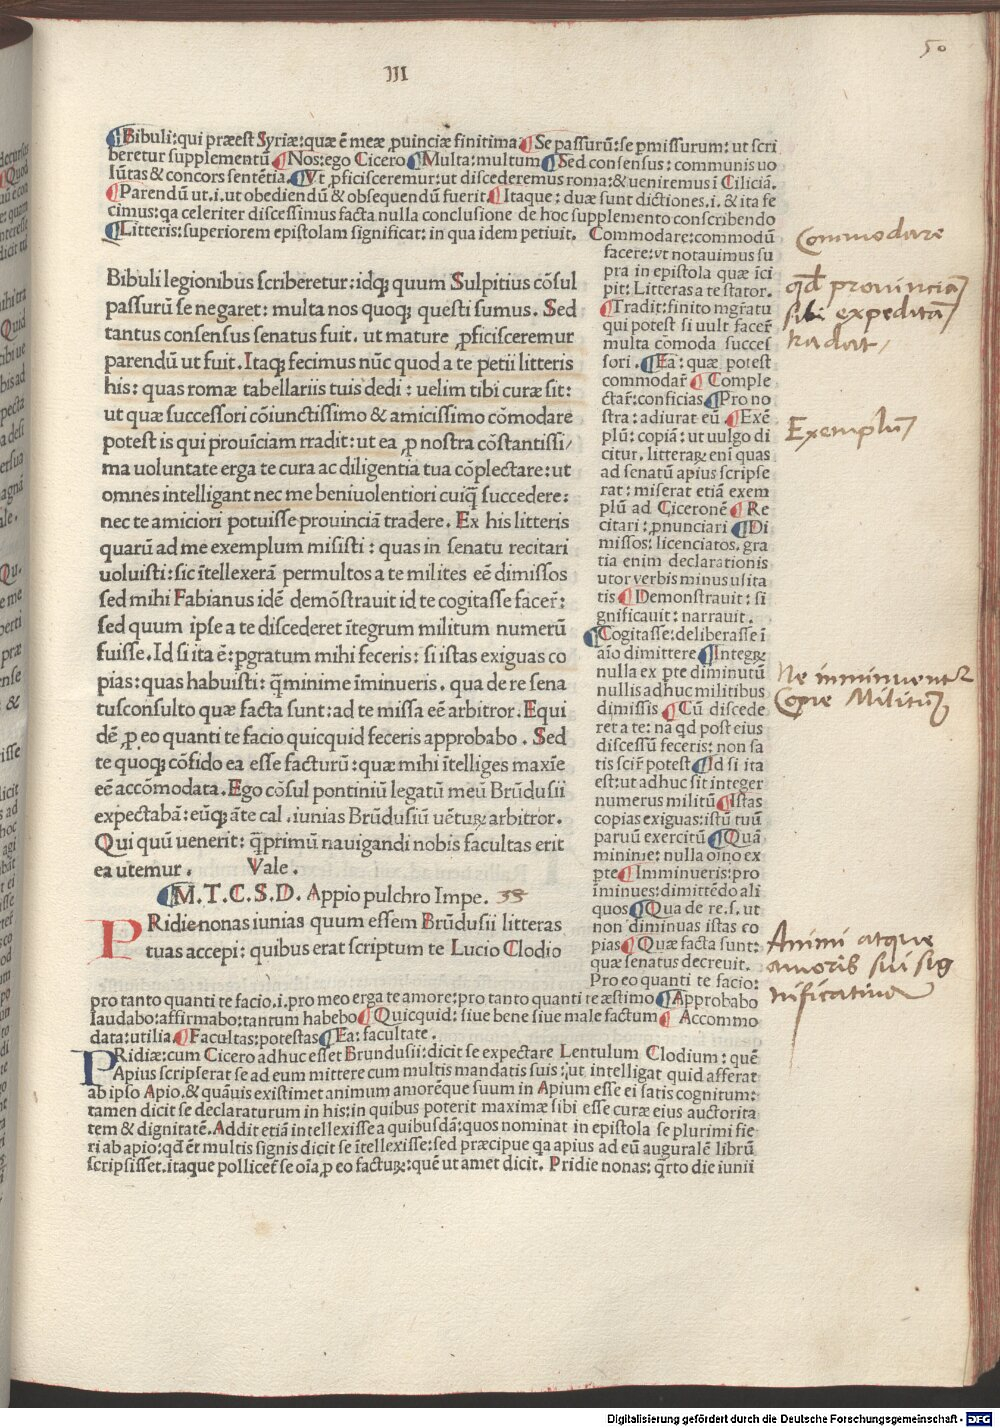 50
III
Bibuli: qui præest Syriæ: quæ ē meæ ꝓuinciæ finitima Se passurū: se ꝑmissurum: ut scri
beretur supplementū Nos: ego Cicero Multa: multum Sed consensus: communis uo
lūtas & concors sentētia. Vt ꝓficisceremur: ut discederemus roma: & ueniremus ī Ciliciā.
Parendū ut .i. ut obediendū & obsequendū fuerit Itaque: duæ sunt dictiones .i. & ita fe
cimus: qa celeriter discessimus facta nulla conclusione de hoc supplemento conscribendo
Litteris: superiorem epistolam significat: in qua idem petiuit.
Bibuli legionibus scriberetur: idqꝫ quum Sulpitius cōsul
passurū se negaret: multa nos quoqꝫ questi sumus. Sed
tantus consensus senatus fuit. ut mature ꝓficisceremur
parendū ut fuit. Itaqꝫ fecimus nūc quod a te petii litteris
his: quas romæ tabellariis tuis dedi: uelim tibi curæ sit:
ut quæ successori cōiunctissimo & amicissimo cōmodare
potest is qui prouīciam tradit: ut ea ꝓ nostra cōstantissi/
ma uoluntate erga te cura ac diligentia tua cōplectare: ut
omnes intelligant nec me beniuolentiori cuiq̄ succedere:
nec te amiciori potuisse prouinciā tradere. Ex his litteris
quarū ad me exemplum misisti: quas in senatu recitari
uoluisti: sic ītellexerā permultos a te milites eē dimissos
sed mihi Fabianus idē demōstrauit id te cogitasse facer̄:
sed quum ipse a te discederet ītegrum militum numerū
fuisse. Id si ita ē: ꝑgratum mihi feceris: si istas exiguas co
pias: quas habuisti: q̄minime īminueris. qua de re sena
tusconsulto quæ facta sunt: ad te missa eē arbitror. Equi
dē ꝓ eo quanti te facio quicquid feceris approbabo. Sed
te quoqꝫ cōfido ea esse facturū: quæ mihi ītelliges maxīe
eē accōmodata. Ego cōsul pontiniū legatū meū Brūdusii
expectabā: eūqꝫ āte cal. iunias Brūdusiū uētuꝝ arbitror.
Qui quū uenerit: q̄primū nauigandi nobis facultas erit
ea utemur. Vale.
M. T. C. S. D. Appio pulchro Impe. 38
PRidie nonas iunias quum essem Brūdusii litteras
tuas accepi: quibus erat scriptum te Lucio Clodio
Commodare: commodū
facere: vt notauimus su
pra in epistola quæ īci
pit: Litteras a te stator.
Tradit: finito mgr̄atu
qui potest si uult facer̄
multa cōmoda succes
sori. Ea: quæ potest
commodar̄ Comple
ctar̄: conficias Pro no
stra: adiurat eū. Exē
plū: copiā: ut uulgo di
citur. litteraꝝ enī quas
ad senatū apius scripse
rat: miserat etiā exem
plū ad Ciceronē Re
citari: ꝓnunciari Di
missos: licenciatos. gra
tia enim declarationis
utor verbis minus usita
tis Demonstrauit: si
gnificauit: narrauit.
Cogitasse: deliberasse ī
aīo dimittere Integꝝ
nulla ex pte diminutū
nullis adhuc militibus
dimissis Cū discede
ret a te: na qd post eius
discessū feceris: non sa
tis scir̄ potest Id si ita
est: ut adhuc sit integer
numerus militū Istas
copias exiguas: istū tuū
paruū exercitū Quā
minime: nulla oīno ex
pte Imminueris: pro
īminues: dimittēdo ali
quos Qua de re .s. ut
non diminuas istas co
pias Quæ facta sunt:
quæ senatus decreuit.
Pro eo quanti te facio:
pro tanto quanti te facio .i. pro meo erga te amore: pro tanto quanti te æstimo Approbabo
laudabo: affirmabo: tantum habebo Quicquid: siue bene siue male factum Accommo
data: utilia. Facultas: potestas Ea: facultate.
PRidiæ: cum Cicero adhuc esset Brundusii: dicit se expectare Lentulum Clodium: quē
Apius scripserat se ad eum mittere cum multis mandatis suis: ut intelligat quid afferat
ab ipso Apio. & quāuis existimet animum amorēque suum in Apium esse ei satis cognitum:
tamen dicit se declaraturum in his: in quibus poterit maximæ sibi esse curæ eius auctorita
tem & dignitatē. Addit etiā intellexisse a quibusdā: quos nominat in epistola se plurimi fie
ri ab apio: qd ēt multis signis dicit se ītellexisse: sed præcipue qa apius ad eū auguralē librū
scripsisset. itaque pollicet̄ se oīa ꝓ eo factuꝝ: quē ut amet dicit. Pridie nonas: q̄rto die iunii
Commodare
qd prouinciā
sibi expeditā
tradat
Exemplū
Ne imminuentur
Copie Militū
Animi atque
amoris sui sig
nificatiua
Digitalisierung gefördert durch die Deutsche Forschungsgemeinschaft - DFG